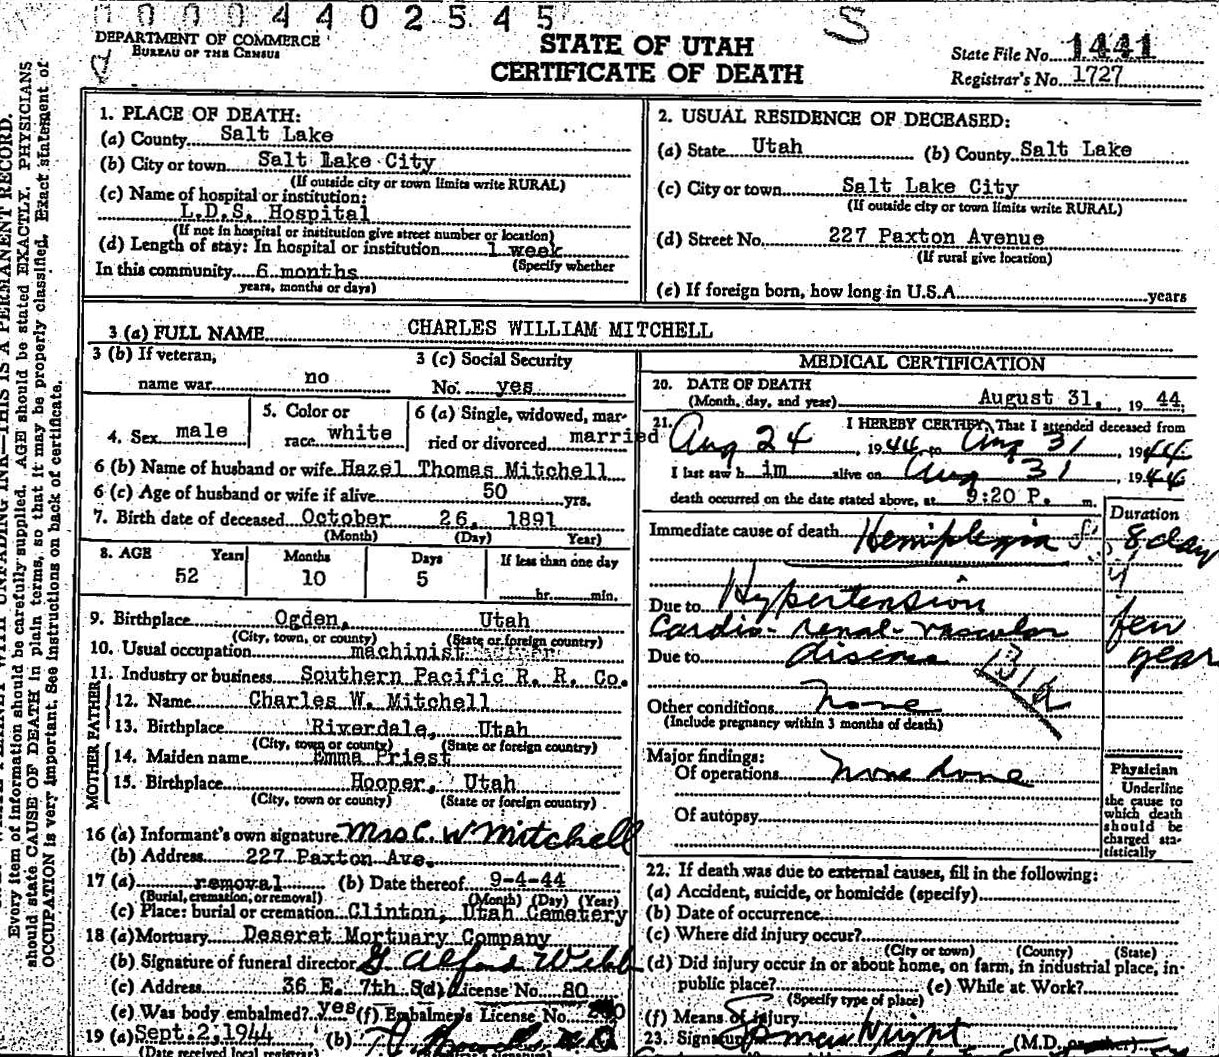 0004402545
S
DEPARTMENT OF COMMERCE
BUREAU OF THE CENSUS
STATE OF UTAH
CERTIFICATE OF DEATH
State File No. 1441
Registrar's No. 1727
1. PLACE OF DEATH:
(a) County Salt Lake
(b) City or town Salt Lake City
(If outside city or town limits write RURAL)
(c) Name of hospital or institution:
L.D.S. Hospital
(If not in hospital or institution give street number or location)
(d) Length of stay: In hospital or institution 1 week
(Specify whether
In this community 6 months
years, months or days)
2. USUAL RESIDENCE OF DECEASED:
(a) State Utah (b) County Salt Lake
(c) City or town Salt Lake City
(If outside city or town limits write RURAL)
(d) Street No. 227 Paxton Avenue
(If rural give location)
(e) If foreign born, how long in U.S.A. years
3 (a) FULL NAME CHARLES WILLIAM MITCHELL
3 (b) If veteran,
name war no
3 (c) Social Security
No. yes
4. Sex male
5. Color or
race white
6 (a) Single, widowed, mar-
ried or divorced married
6 (b) Name of husband or wife Hazel Thomas Mitchell
6 (c) Age of husband or wife if alive 50 yrs.
7. Birth date of deceased October 26, 1891
(Month) (Day) Year)
8. AGE Years Months Days If less than one day
52 10 5 hr. min.
9. Birthplace Ogden, Utah
(City, town, or county) (State or foreign country)
10. Usual occupation machinist
11. Industry or business Southern Pacific R. R. Co.
FATHER
12. Name Charles W. Mitchell
13. Birthplace Riverdale, Utah
(City, town or county) (State or foreign country)
MOTHER
14. Maiden name Emma Priest
15. Birthplace Hooper, Utah
(City, town, or county) (State or foreign country)
16 (a) Informant's own signature Mrs C. W Mitchell
(b) Address 227 Paxton Ave.
17 (a) removal (b) Date thereof 9-4-44
(Burial, cremation, or removal) (Month) (Day) (Year)
(c) Place: burial or cremation Clinton, Utah Cemetery
18 (a) Mortuary Deseret Mortuary Company
(b) Signature of funeral director G Alfred Webb
(c) Address 36 E. 7th So (d) License No. 80
(e) Was body embalmed? yes (f) Embalmer's License No.
19 (a) Sept. 2, 1944 (b)
(Date received local registrar)
MEDICAL CERTIFICATION
20. DATE OF DEATH
(Month, day, and year) August 31, 19 44
21. I HEREBY CERTIFY, That I attended deceased from
Aug 24, 1944 to Aug 31, 1944
I last saw h im alive on Aug 31, 1944
death occurred on the date stated above, at 9:20 P. m.
Duration
Immediate cause of death Hemiplegia 8 day
Due to Hypertension few
Cardio-renal-vascular
Due to disease years
131a
Other conditions None
(Include pregnancy within 3 months of death)
Major findings:
Of operations None done
Of autopsy
Physician
Underline
the cause to
which death
should be
charged sta-
tistically
22. If death was due to external causes, fill in the following:
(a) Accident, suicide, or homicide (specify)
(b) Date of occurrence
(c) Where did injury occur?
(City or town) (County) (State)
(d) Did injury occur in or about home, on farm, in industrial place, in
public place? (e) While at Work?
(Specify type of place)
(f) Means of injury
23. Signature Wright (M.D. or other)
THIS IS A PERMANENT RECORD.
Every item of information should be carefully supplied. AGE should be stated EXACTLY. PHYSICIANS
should state CAUSE OF DEATH in plain terms, so that it may be properly classified. Exact statement of
OCCUPATION is very important. See instructions on back of certificate.